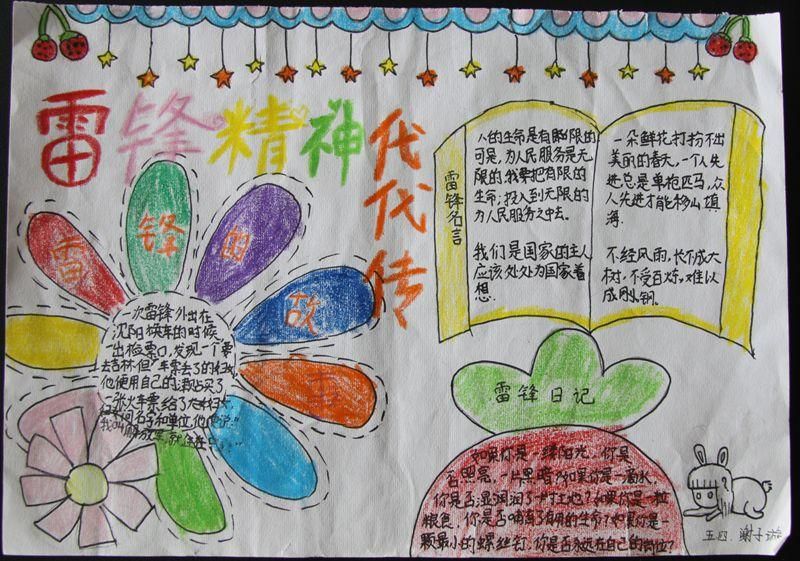 雷锋精神代代传
雷锋的故事
一次雷锋外出在
沈阳换车的时候,
一出检票口,发现一个要
去吉林但车票丢了的妇女,
他使用自己的津贴买了
一张火车票给了大嫂
雷锋名言
人的生命是有限的
可是,为人民服务是无
限的,我要把有限的
生命,投入到无限的
为人民服务之中去。
我们是国家的主人
应该处处为国家着
想.
一朵鲜花打扮不出
美丽的春天,一个人先
进总是单枪匹马,众
人先进才能移山填
海.
不经风雨,长不成大
树,不受百炼,难以
成刚钢.
雷锋日记
如果你是一缕阳光,你是
否照亮,一片黑暗?如果你是一滴水,
你是否湿润润了一寸土地?如果你是一粒
粮食,你是否哺育了有用的生命?如果你是一
颗最小的螺丝钉,你是否永远在自己的岗位?
五四.谢子